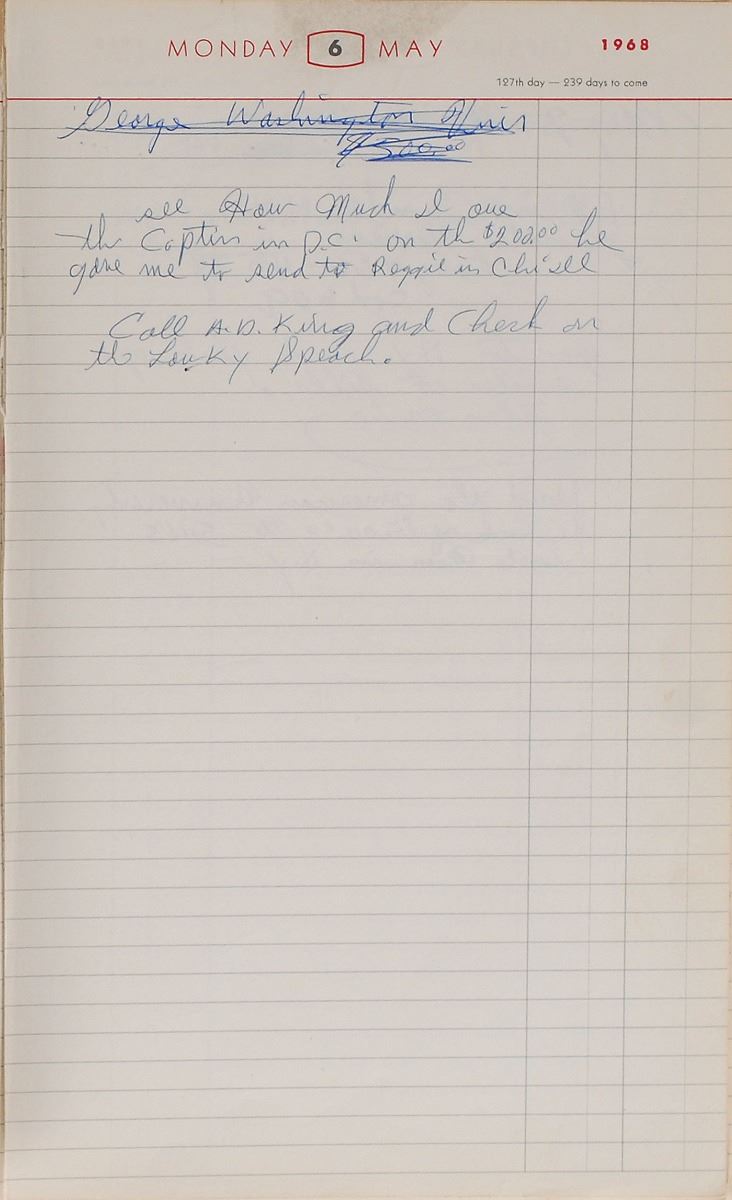 MONDAY 6 MAY 1968
127th day — 239 days to come
George Washington Univ
$500.00
see How Much I owe
the Captin in D.C. on the $200.00 he
gave me to send to Reggie in Chi'sell
Call A.D. King and Check on
the Louky Speach.